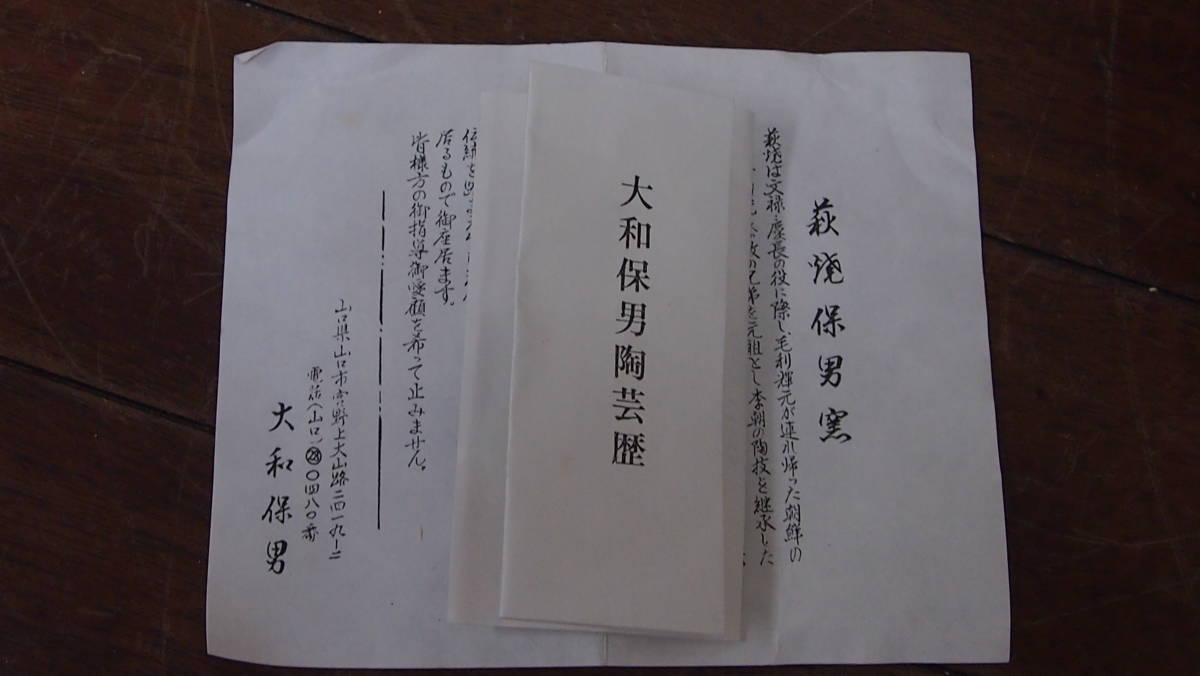 萩焼保男窯
萩焼は文禄・慶長の役に際し、毛利輝元が連れ帰った朝鮮の
の兄弟を元祖とし李朝の陶技を継承した
大和保男陶芸歴
伝統を
居るもので御座居ます。
皆様方の御指導御愛顧を希って止みません。
山口県山口市宮野上大山路二四一九ー二
電話(山口)㉘〇四八〇番
大和保男